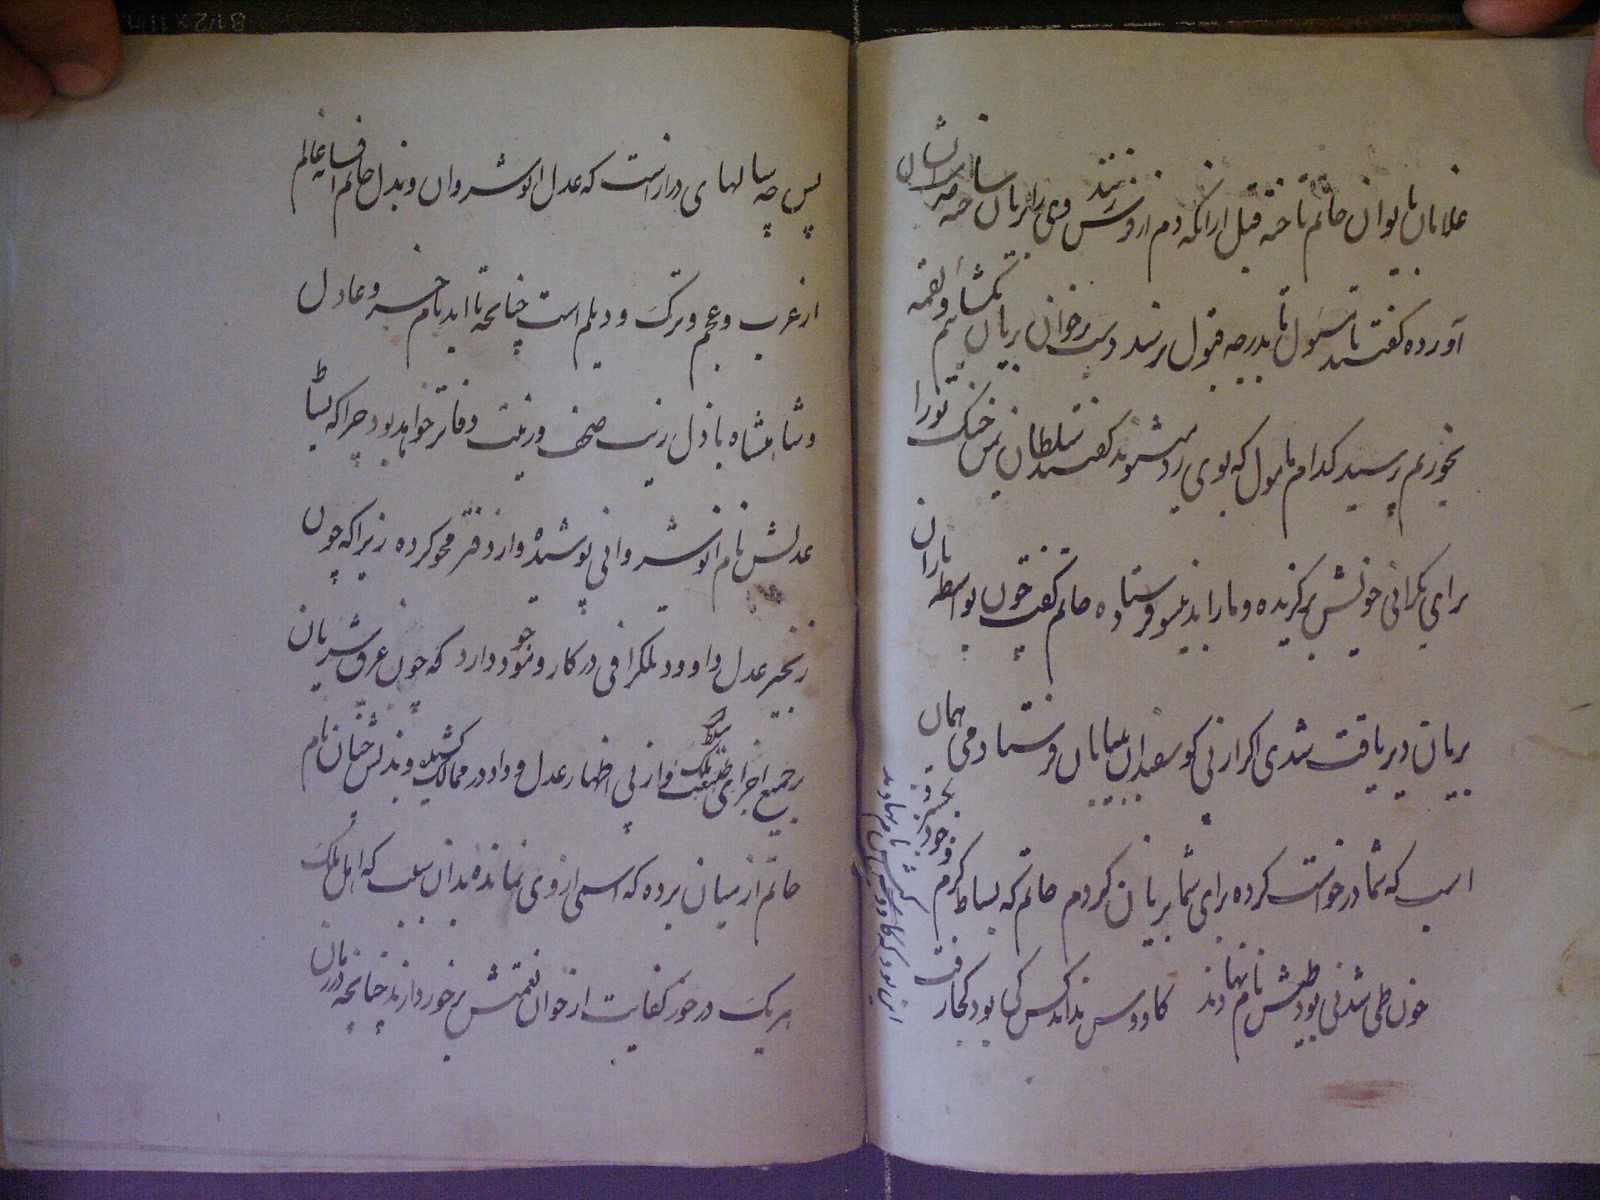 غلامان بایوان حاتم تاخته قبل ازانکه دم از وی زنند بریان ساخته نزد ایشان
آورده گفتند تا مسئول ما بدرجه قبول نرسد دست بر خوان بریان نکشائیم و لقمه
نخوریم پرسید کدام مامول که بوی رد میشوند گفتند سلطان یمن خنک تورا
برای یکرانی خویش برگزیده و مارا بدینسو فرستاده حاتم گفت چون بواسطه باران
بریان دریافت شدی اکر از پی کوسفندان بیابان فرستادمی همان
اسب که شما درخواست کرده برای شما بریان کردم حاتم که بساط کرم
چون طی شدنی بود طیش نام نهادند کاووس نداند کس کی بود کجا رفت
پس چه سالهای درازست که عدل انوشروان و بذل حاتم افسانه عالم
از عرب و عجم و ترک و دیلم است چنانچه تا ابد نام خسرو عادل
و شاهنشاه باذل زیب صحف و زینت دفاتر خواهد بود چرا که
عدلش نام انوشروانی پوشیده و از دفتر محو کرده زیرا که چون
زنجیر عدل داوود تلکرافی در کار و نمود دارد که چون عرق شریان
در جمیع اجزای ملک و از پی اظهار عدل و داد در ممالک کشیده و بذلش چنان نام
حاتم از میان برده که اسمی از وی نمانده بدان سبب که اهل ملک
هر یک در خور کفایت از خوان نعمتش برخوردارند چنانچه در زمان